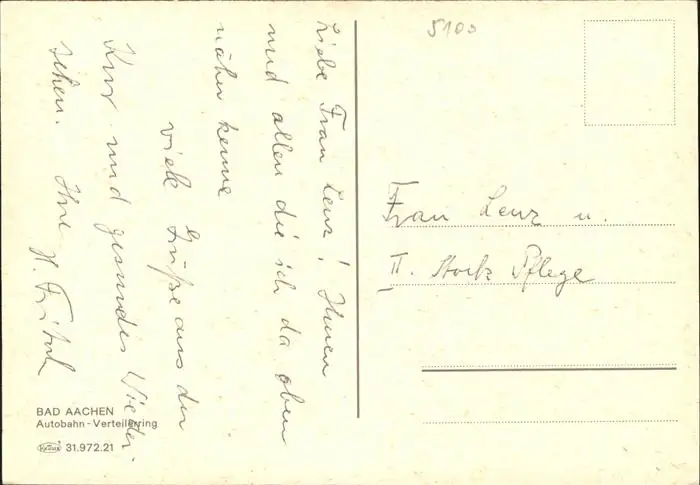 Liebe Frau Lenz! Ihnen
und allen die ich da oben
näher kenne
viele Grüße aus der
Kur und gesundes Wieder-
sehen. Ihre H. Fritsch
5100
Frau Lenz u.
II. Stock Pflege
BAD AACHEN
Autobahn-Verteilerring
Krüger 31.972.21